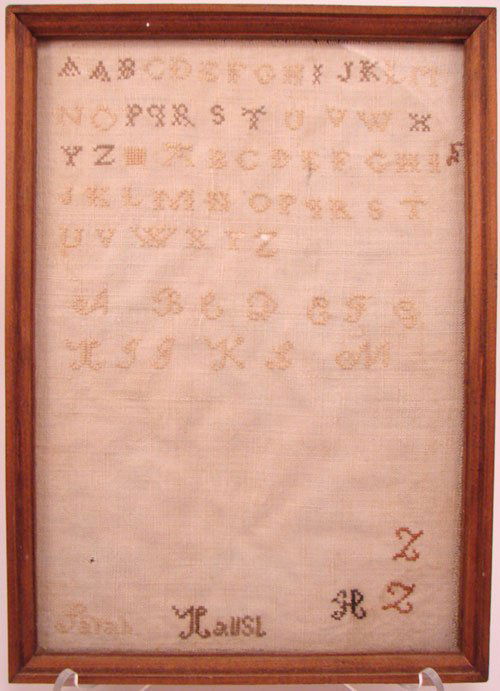 A A B C D E F G H I J K L M
N O P q R S T U V W X
Y Z A B C D E F G H I
J K L M N O P q R S T
U V W X Y Z
A B C D E F G
H I J K L M
Z
H Z
Sarah HausL